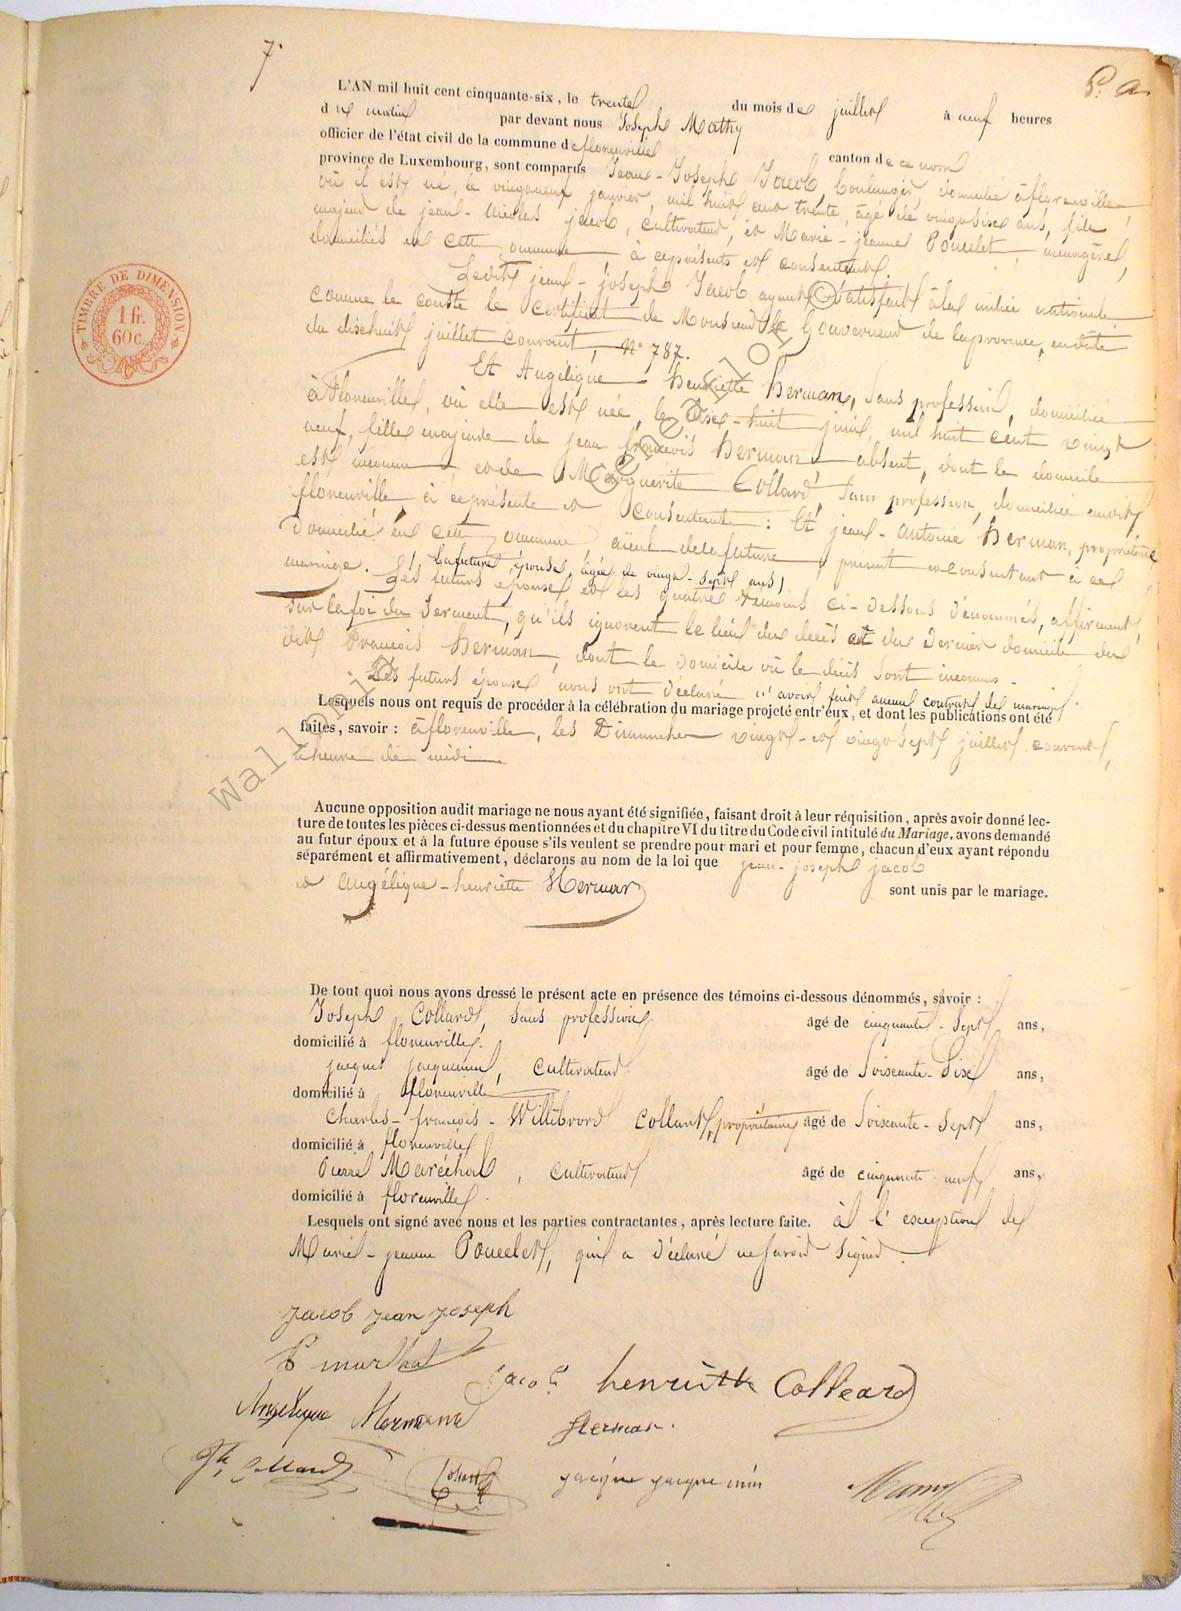 7.
P. a.
L'AN mil huit cent cinquante-six, le trente du mois de juillet à neuf heures
du matin par devant nous Joseph Mathy
officier de l'état civil de la commune de florenville canton de ce nom
province de Luxembourg, sont comparus Jean-Joseph Jacob, boulanger, domicilié à florenville,
où il est né, le vingt neuf janvier, mil huit cent trente, âgé de vingt six ans, fils
majeur de jean-nicolas jacob, cultivateur, et Marie-jeanne Poncelet, ménagère,
domiciliés en cette commune, à ce présents et consentants.
Ledit jean-joseph Jacob ayant satisfait à la milice nationale
comme le conste le certificat de Monsieur le Gouverneur de la province, en date
du dixhuit juillet courant, N° 787.
Et Angélique-henriette herman, sans profession, domiciliée
à Florenville, où elle est née, le dix-huit juin, mil huit cent vingt
neuf, fille majeure de jean françois herman, absent, dont le domicile
est inconnu, et de Marguérite Collard, sans profession, domiciliée audit
florenville, à ce présente et consentante: Et jean-antoine herman, propriétaire
domicilié en cette commune, aïeul de la future, présent et consentant à ce
mariage. la future épouse, âgée de vingt-sept ans,
Les futurs époux et les quatre témoins ci-dessous dénommés, affirment,
sur la foi du serment, qu'ils ignorent le lieu du decès et du dernier domicile du
dit François herman, dont le domicile où le décès sont inconnus.
Les futurs époux nous ont déclaré n'avoir fait aucun contrat de mariage.
Lesquels nous ont requis de procéder à la célébration du mariage projeté entr'eux, et dont les publications ont été
faites, savoir: à florenville, les Dimanches vingt et vingt sept juillet courant,
à heure de midi
Aucune opposition audit mariage ne nous ayant été signifiée, faisant droit à leur réquisition, après avoir donné lec-
ture de toutes les pièces ci-dessus mentionnées et du chapitre VI du titre du Code civil intitulé du Mariage, avons demandé
au futur époux et à la future épouse s'ils veulent se prendre pour mari et pour femme, chacun d'eux ayant répondu
séparément et affirmativement, déclarons au nom de la loi que jean-joseph jacob
et angélique-henriette Herman sont unis par le mariage.
De tout quoi nous avons dressé le présent acte en présence des témoins ci-dessous dénommés, savoir:
Joseph Collard, sans profession âgé de cinquante-sept ans,
domicilié à florenville.
jacques jacquemin, cultivateur âgé de Soixante-Six ans,
domicilié à florenville
Charles-françois-Willibrord Collart, propriétaire âgé de Soixante-sept ans,
domicilié à florenville
Pierre Maréchal, cultivateur âgé de cinquante-neuf ans,
domicilié à florenville.
Lesquels ont signé avec nous et les parties contractantes, après lecture faite. à l'exception de
Marie-jeanne Poncelet, qui a déclaré ne savoir signer.
Jacob Jean Joseph
P marchal
Jacob henriette Colleard
Angelique Hermane herman.
Jh Collard Collart jacque jacquemin Mathy
TIMBRE DE DIMENSION
1 fr.
60c.
Wallonie
GeneaWallonie